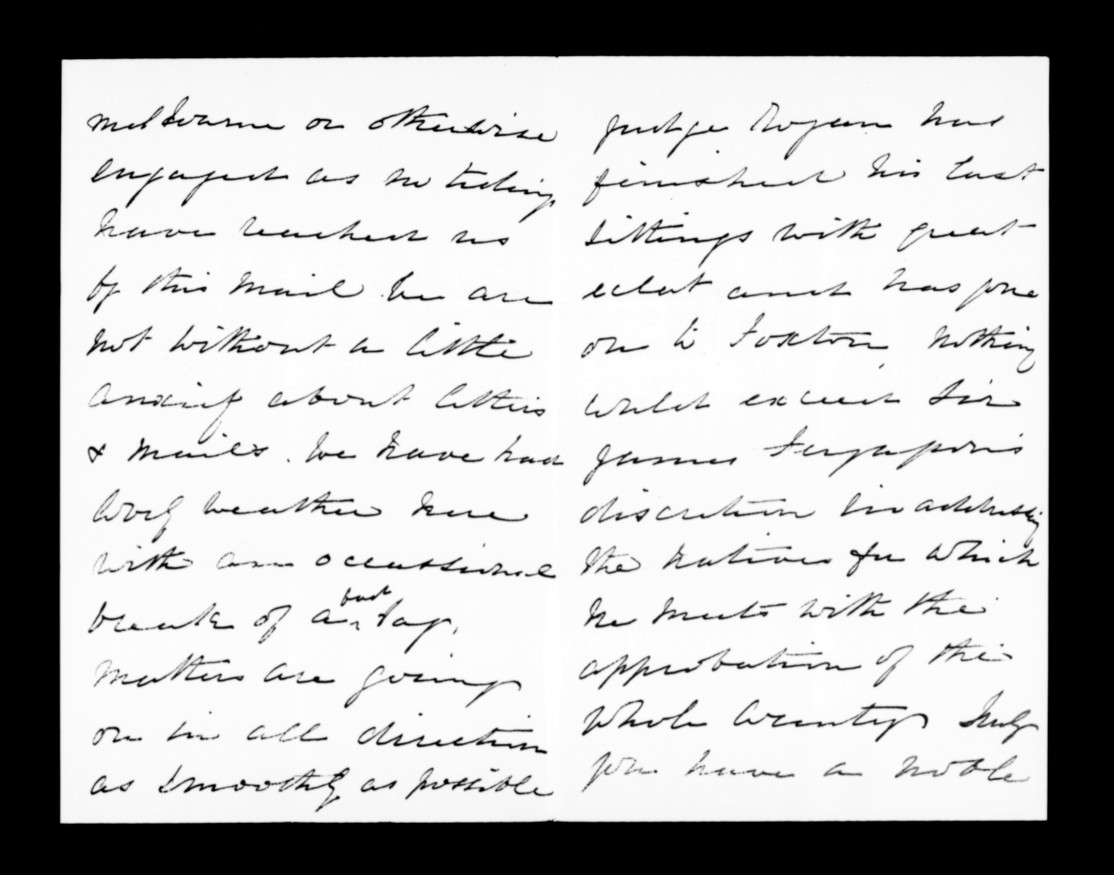 melbourne or otherwise
engaged as no tidings
have reached us
by this mail we are
not without a little
anxiety about letters
& mails. We have had
lovely weather here
with an occassional
break of a bad day.
matters are going
on in all direction
as smoothly as possible
Judge Rogan has
finished his last
sittings with great
eclat and has gone
on to Foxton nothing
could exceed Sir
James Fergussons
discretion in addressing
the natives for which
he meets with the
approbation of the
whole country Truly
you have a noble